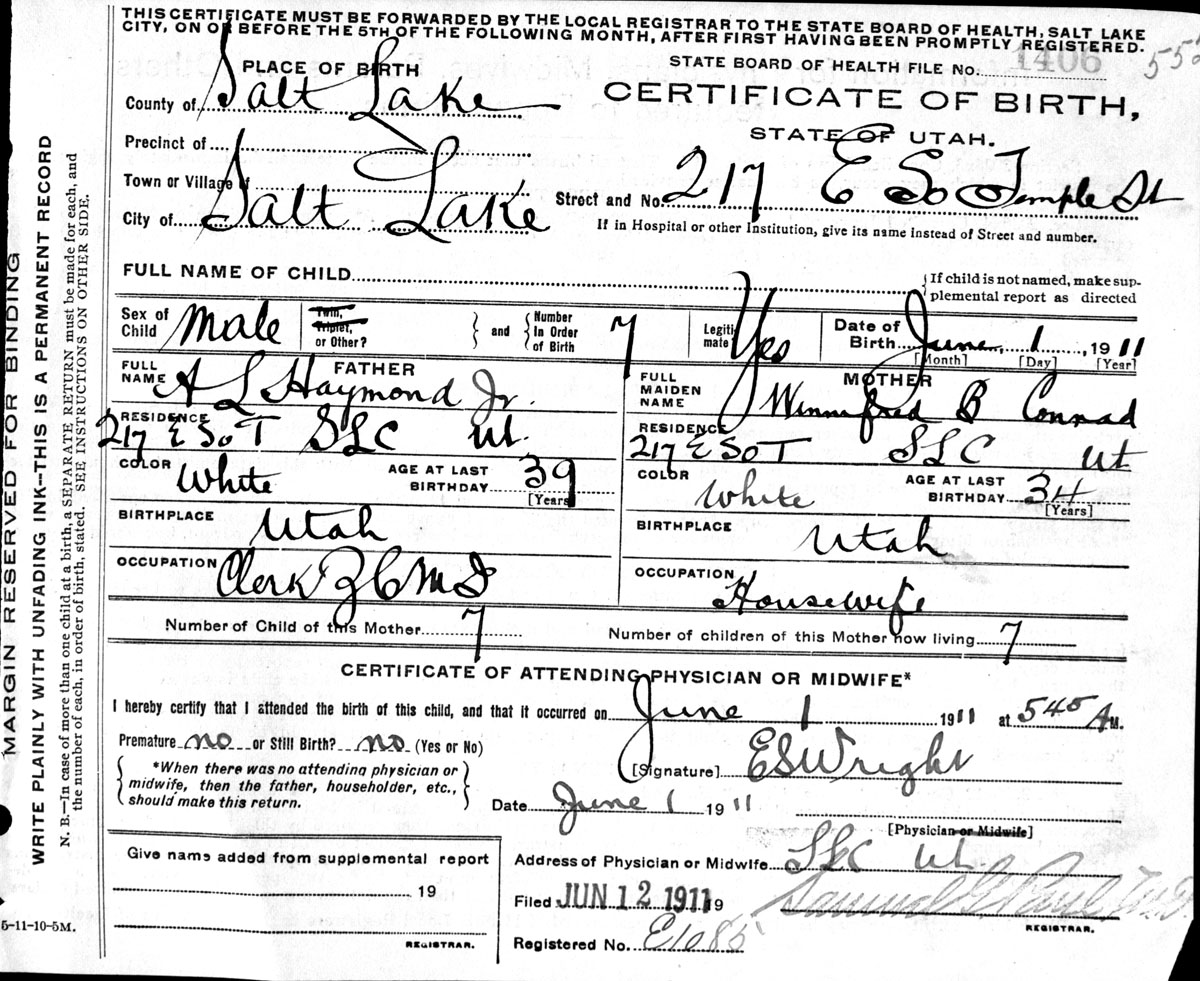 THIS CERTIFICATE MUST BE FORWARDED BY THE LOCAL REGISTRAR TO THE STATE BOARD OF HEALTH, SALT LAKE
CITY, ON OR BEFORE THE 5TH OF THE FOLLOWING MONTH, AFTER FIRST HAVING BEEN PROMPTLY REGISTERED.
STATE BOARD OF HEALTH FILE No. 1406
PLACE OF BIRTH
CERTIFICATE OF BIRTH,
STATE OF UTAH.
County of Salt Lake
Precinct of
Town or Village of
City of Salt Lake
Street and No. 217 E So Temple St
If in Hospital or other Institution, give its name instead of Street and number.
FULL NAME OF CHILD
If child is not named, make sup-
plemental report as directed
Sex of Child Male
Twin, Triplet, or Other?
and
Number In Order of Birth 7
Legiti mate? Yes
Date of Birth June 1, 1911
[Month] [Day] [Year]
FATHER
FULL NAME A L Haymond Jr.
RESIDENCE 217 E So T SLC Ut.
COLOR White
AGE AT LAST BIRTHDAY 39
[Years]
BIRTHPLACE Utah
OCCUPATION Clerk Z C M I
MOTHER
FULL MAIDEN NAME Winnefred B Conrad
RESIDENCE 217 E So T SLC Ut
COLOR White
AGE AT LAST BIRTHDAY 34
[Years]
BIRTHPLACE Utah
OCCUPATION Housewife
Number of Child of this Mother 7
Number of children of this Mother now living 7
CERTIFICATE OF ATTENDING PHYSICIAN OR MIDWIFE*
I hereby certify that I attended the birth of this child, and that it occurred on June 1 1911 at 545 A M.
Premature no or Still Birth? no (Yes or No)
*When there was no attending physician or
midwife, then the father, householder, etc.,
should make this return.
[Signature] E S Wright
Date June 1 1911
[Physician or Midwife]
Give name added from supplemental report
19
REGISTRAR.
Address of Physician or Midwife SLC Ut.
Filed JUN 12 1911 19
Samuel G Paul M.D.
REGISTRAR.
Registered No. E1085
5-11-10-5M.
MARGIN RESERVED FOR BINDING
WRITE PLAINLY WITH UNFADING INK--THIS IS A PERMANENT RECORD
N. B.—In case of more than one child at a birth, a SEPARATE RETURN must be made for each, and
the number of each, in order of birth, stated. SEE INSTRUCTIONS ON OTHER SIDE.